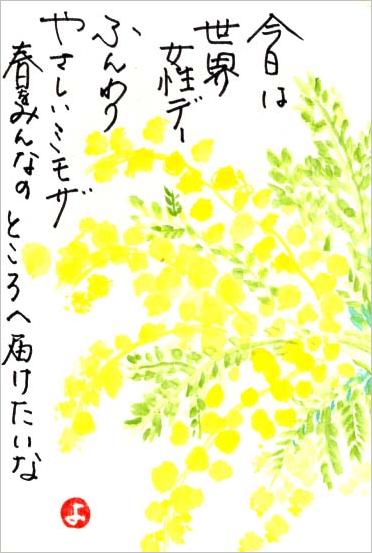 今日は
世界
女性デー
ふんわり
やさしいミモザ
春をみんなの
ところへ届けたいな
よ